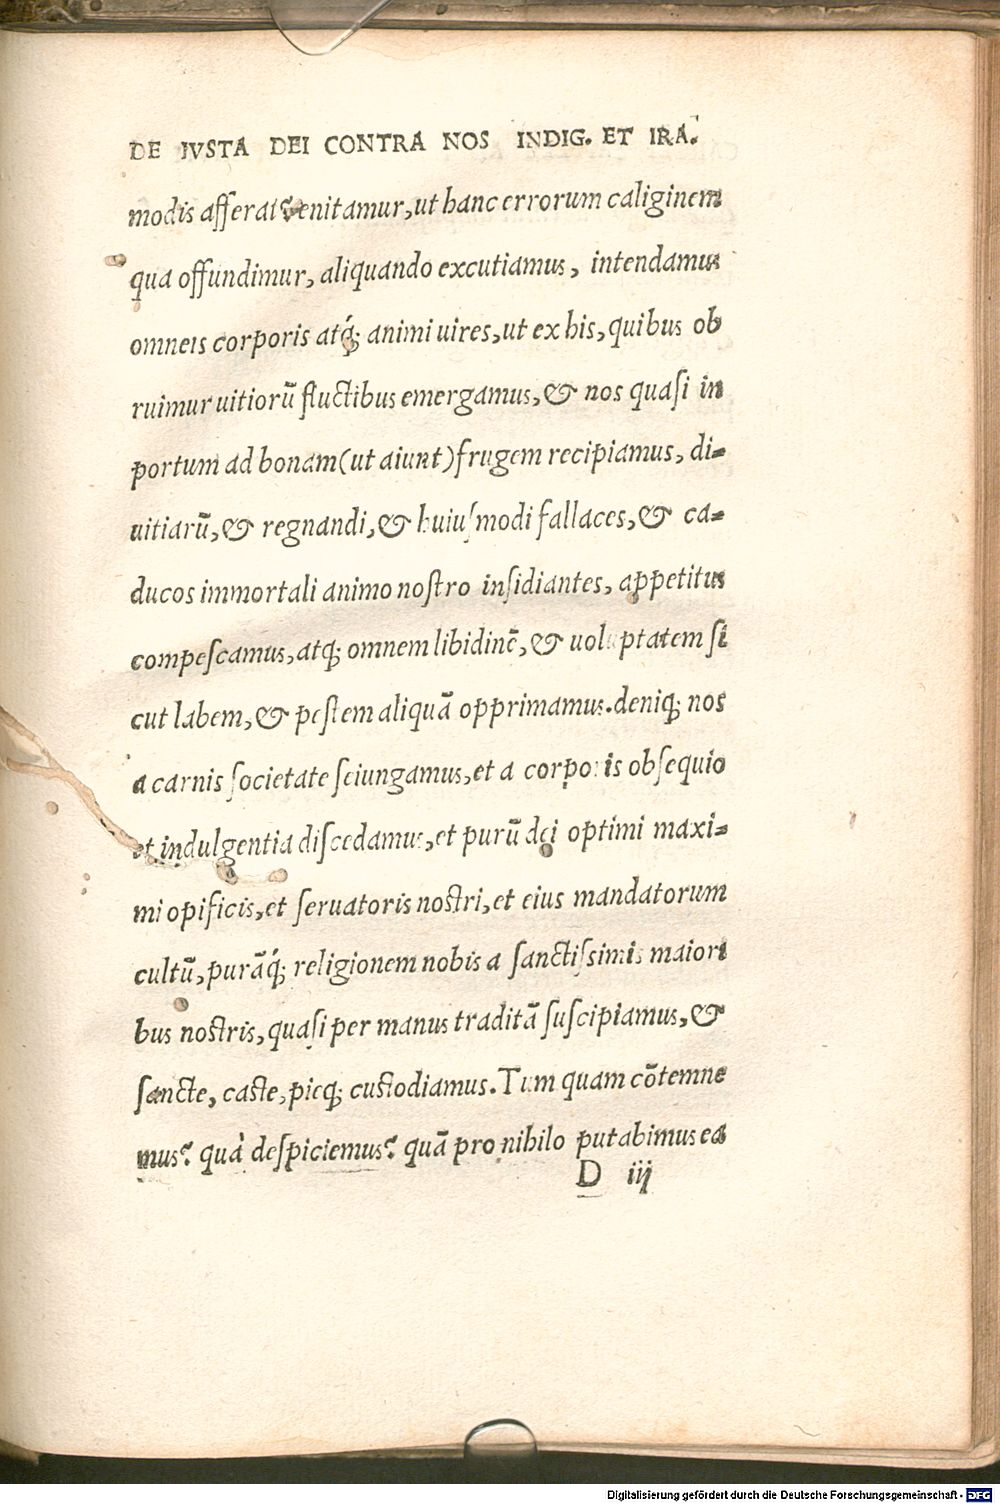 DE IVSTA DEI CONTRA NOS INDIG. ET IRA.
modis afferat? enitamur, ut hanc errorum caliginem
qua offundimur, aliquando excutiamus, intendamus
omneis corporis atq́; animi uires, ut ex his, quibus ob
ruimur uitiorū fluctibus emergamus, & nos quasi in
portum ad bonam (ut aiunt) frugem recipiamus, di-
uitiarū, & regnandi, & huiuſmodi fallaces, & ca-
ducos immortali animo noſtro inſidiantes, appetitus
compeſcamus, atq; omnem libidinē, & uoluptatem ſi
cut labem, & peſtem aliquā opprimamus. deniq; nos
a carnis ſocietate ſeiungamus, et a corporis obſequio
et indulgentia diſcedamus, et purū dei optimi maxi-
mi opificis, et ſeruatoris noſtri, et eius mandatorum
cultū, purāq́; religionem nobis a ſanctiſſimis maiori
bus noſtris, quaſi per manus traditā ſuſcipiamus, &
ſancte, caſte, pieq; cuſtodiamus. Tum quam cōtemne
mus? quā deſpiciemus? quā pro nihilo putabimus ea
D iij
Digitalisierung gefördert durch die Deutsche Forschungsgemeinschaft - DFG